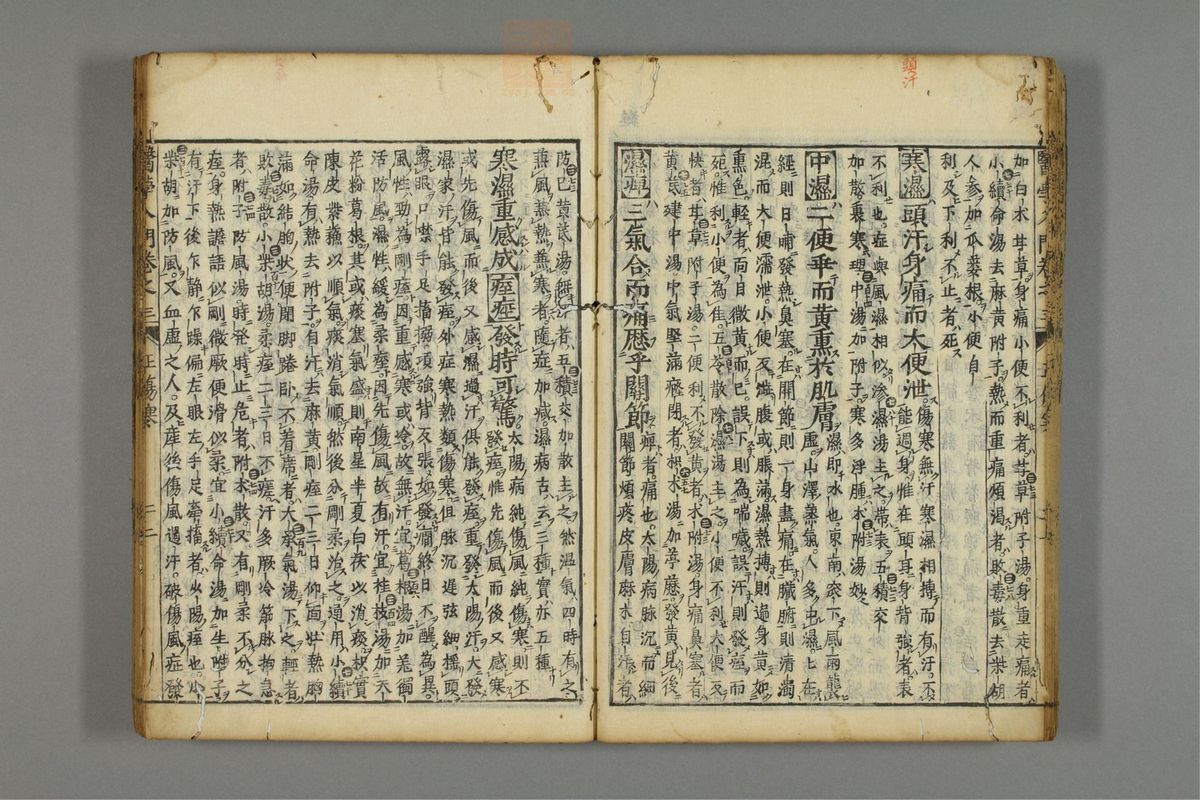 頭汗
加白木甘草身痛小便不利者甘草附子湯身重走痛者
小續命湯去麻黄附子熱而重痛煩渴者敗毒散去柴胡
人参加瓜蔞根小便自
利及下利不止者死
寒濕頭汗身痛而大便泄傷寒無汗寒濕相搏而有汗不
能過身惟在頭耳身背強者表
不利也症與風濕相似滲濕湯主之帶表五積交
加散裏寒理中湯加附子寒多浮腫木附湯妙
中濕二便乖而黄熏於肌膚濕即水也東南卑下風雨襲
虚山澤蒸氣人多中濕濕在
經則日晡發熱鼻塞在關節則一身盡痛在臓腑則清濁
混而大便濡泄小便反澁腹或脹滿濕熱搏則遍身黄如
熏色輕者面目微黄而已誤下則為喘噦誤汗則發痙而
死惟利小便為佳五苓散除濕湯主之小便不利大便反
快者甘草附子湯二便利不發黄者木附湯身痛鼻塞者
黄芪建中湯中氣堅滿癃閉者木湯加芋藶發黄見後
三氣合而痛歴乎關節痺者痛也太陽病脉沉而細
關節煩疼皮膚麻木自汗者
防已黄芪湯無汗者五積交加散主之然濕氣四時有之
兼風兼熱兼寒者隨症加减濕病古云三種實亦五種
寒濕重感成痙痓發時可驚太陽病純傷風純傷寒則不
發痙惟先傷風而後又感寒
或先傷風而後又感濕過汗俱能發痙重發太陽汗大發
濕家汗皆能發痙外症寒熱類傷寒但脉沉遲弦細揺頭
露眼口噤手足搐搦項強背反張如發癇終日不醒為異
風性勁為剛痙因重感寒或冷故無汗宜葛根湯加羌獨
活防風濕性緩為柔痙因先傷風故有汗宜桂枝湯加天
花粉葛根其或痰塞氣盛則南星半夏白茯以消痰枳實
陳皮紫蘓以順氣痰消氣順然後分剛柔治之通用小續
命湯有熱去附子有汗去麻黄剛痙二三日仰面壮熱胸
滿如結胸状便閉脚踡臥不着席者大承氣湯下之輕者
敗毒散小柴胡湯柔痙二三日不痙汗多厥冷筋脉拘急
者附子防風湯時發時止危者附木散又有剛柔不分之
痙身熱譫語似剛微厥便滑似柔宜小續命湯加生附子
有汗下後乍静乍躁偏左眼左手足牽搐者少陽痙也小
柴胡加防風又血虚之人及産後傷風過汗破傷風症發
醫學入門巻之三 正傷寒